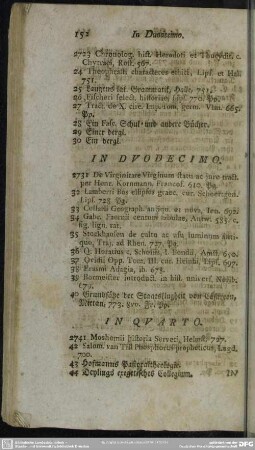 152 In Duodecimo.
2723 Chronolog. hist. Herodoti et Thucydid. c.
Chytraei, Rost. 567.
24 Theophrasti characteres ethici, Lips. et Hal.
751.
25 Langens lat. Grammatik, Halle, 751.
26 Fischeri select. historiae 770. Pp.
27 Tract. de X circ. Imp. rom. germ. Vlm. 665.
Pp.
28 Ein Fasc. Schul- und andere Bücher.
29 Einer dergl.
30 Ein dergl.
IN DVODECIMO.
2731 De Virginitate Virginum statu ac jure tract.
per Henr. Kornmann, Francof. 610. Pg.
32 Lamberti Bos ellipses graec. cur. Schoettgenii.
Lips. 728 Pg.
33 Cellarii Geograph. antiqu. ac nova, Jen. 692.
34 Gabr. Faernii centum fabulae, Antw. 585 c.
fig. lign. rar.
35 Stockhausen de cultu ac usu luminum antiquo,
Traj. ad Rhen. 727. Pg.
36 Q. Horatius c. Schmid. I. Bondii, Amst. 650.
37 Ovidii Opp. Tom. III. cur. Heinsii, Amst. 697.
38 Erasmi Adagia, ib. 678.
39 Boxmeister introduct. in hist. univers. Norib.
679.
40 Grundsätze der Staatsklugheit von
773. Pp.
IN QVARTO.
2741 Moshemii historia Serveti, Helmst. 727.
42 Salom. van Till Phosphorus propheticus, Lugd.
700.
43 Hofmanns Pastoraltheologie.
44 Deylings exegetisches Collegium.